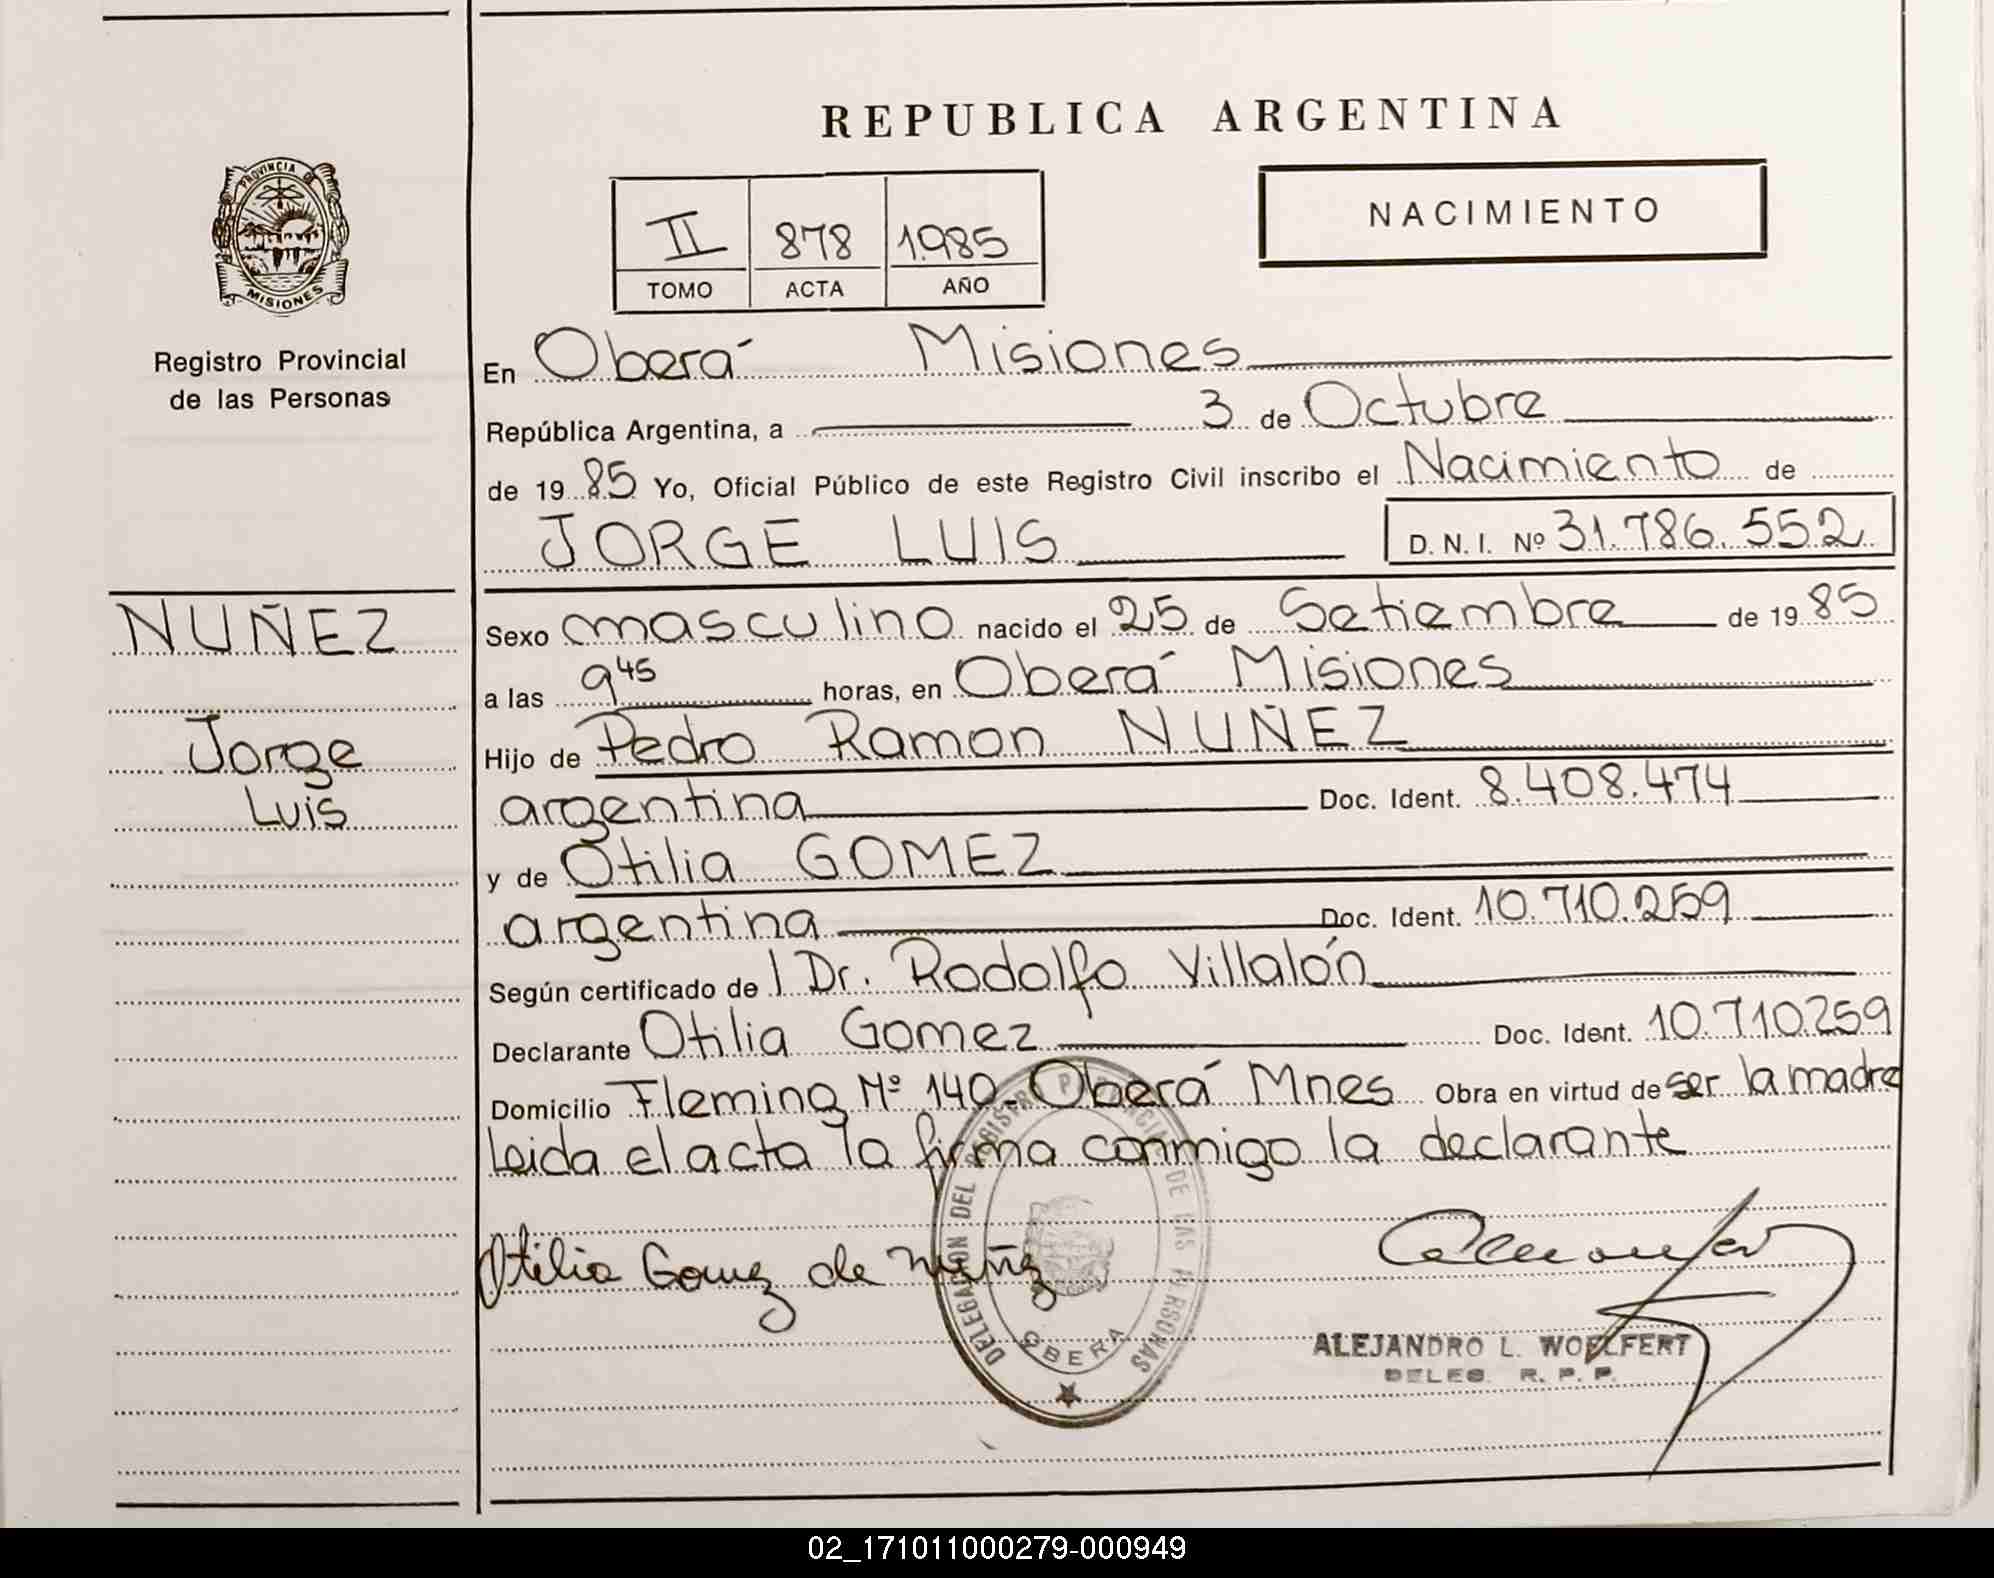 REPUBLICA ARGENTINA
PROVINCIA DE
MISIONES
Registro Provincial
de las Personas
II 878 1.985
TOMO ACTA AÑO
NACIMIENTO
En Oberá Misiones
República Argentina, a 3 de Octubre
de 1985 Yo, Oficial Público de este Registro Civil inscribo el Nacimiento de
JORGE LUIS D. N. I. Nº 31.786.552
NUÑEZ
Jorge
Luis
Sexo masculino nacido el 25 de Setiembre de 1985
a las 9 45 horas, en Oberá Misiones
Hijo de Pedro Ramon NUÑEZ
argentina Doc. Ident. 8.408.474
y de Otilia GOMEZ
argentina Doc. Ident. 10.710.259
Según certificado de l Dr. Rodolfo Villalón
Declarante Otilia Gomez Doc. Ident. 10.710.259
Domicilio Fleming Nº 140- Oberá Mnes Obra en virtud de ser la madre
Leida el acta la firma conmigo la declarante
Otilia Gomez de Nuñez
DELEGACION DEL REGISTRO PROVINCIAL DE LAS PERSONAS
OBERA
ALEJANDRO L. WOELFERT
DELEG. R. P. P.
02_171011000279-000949